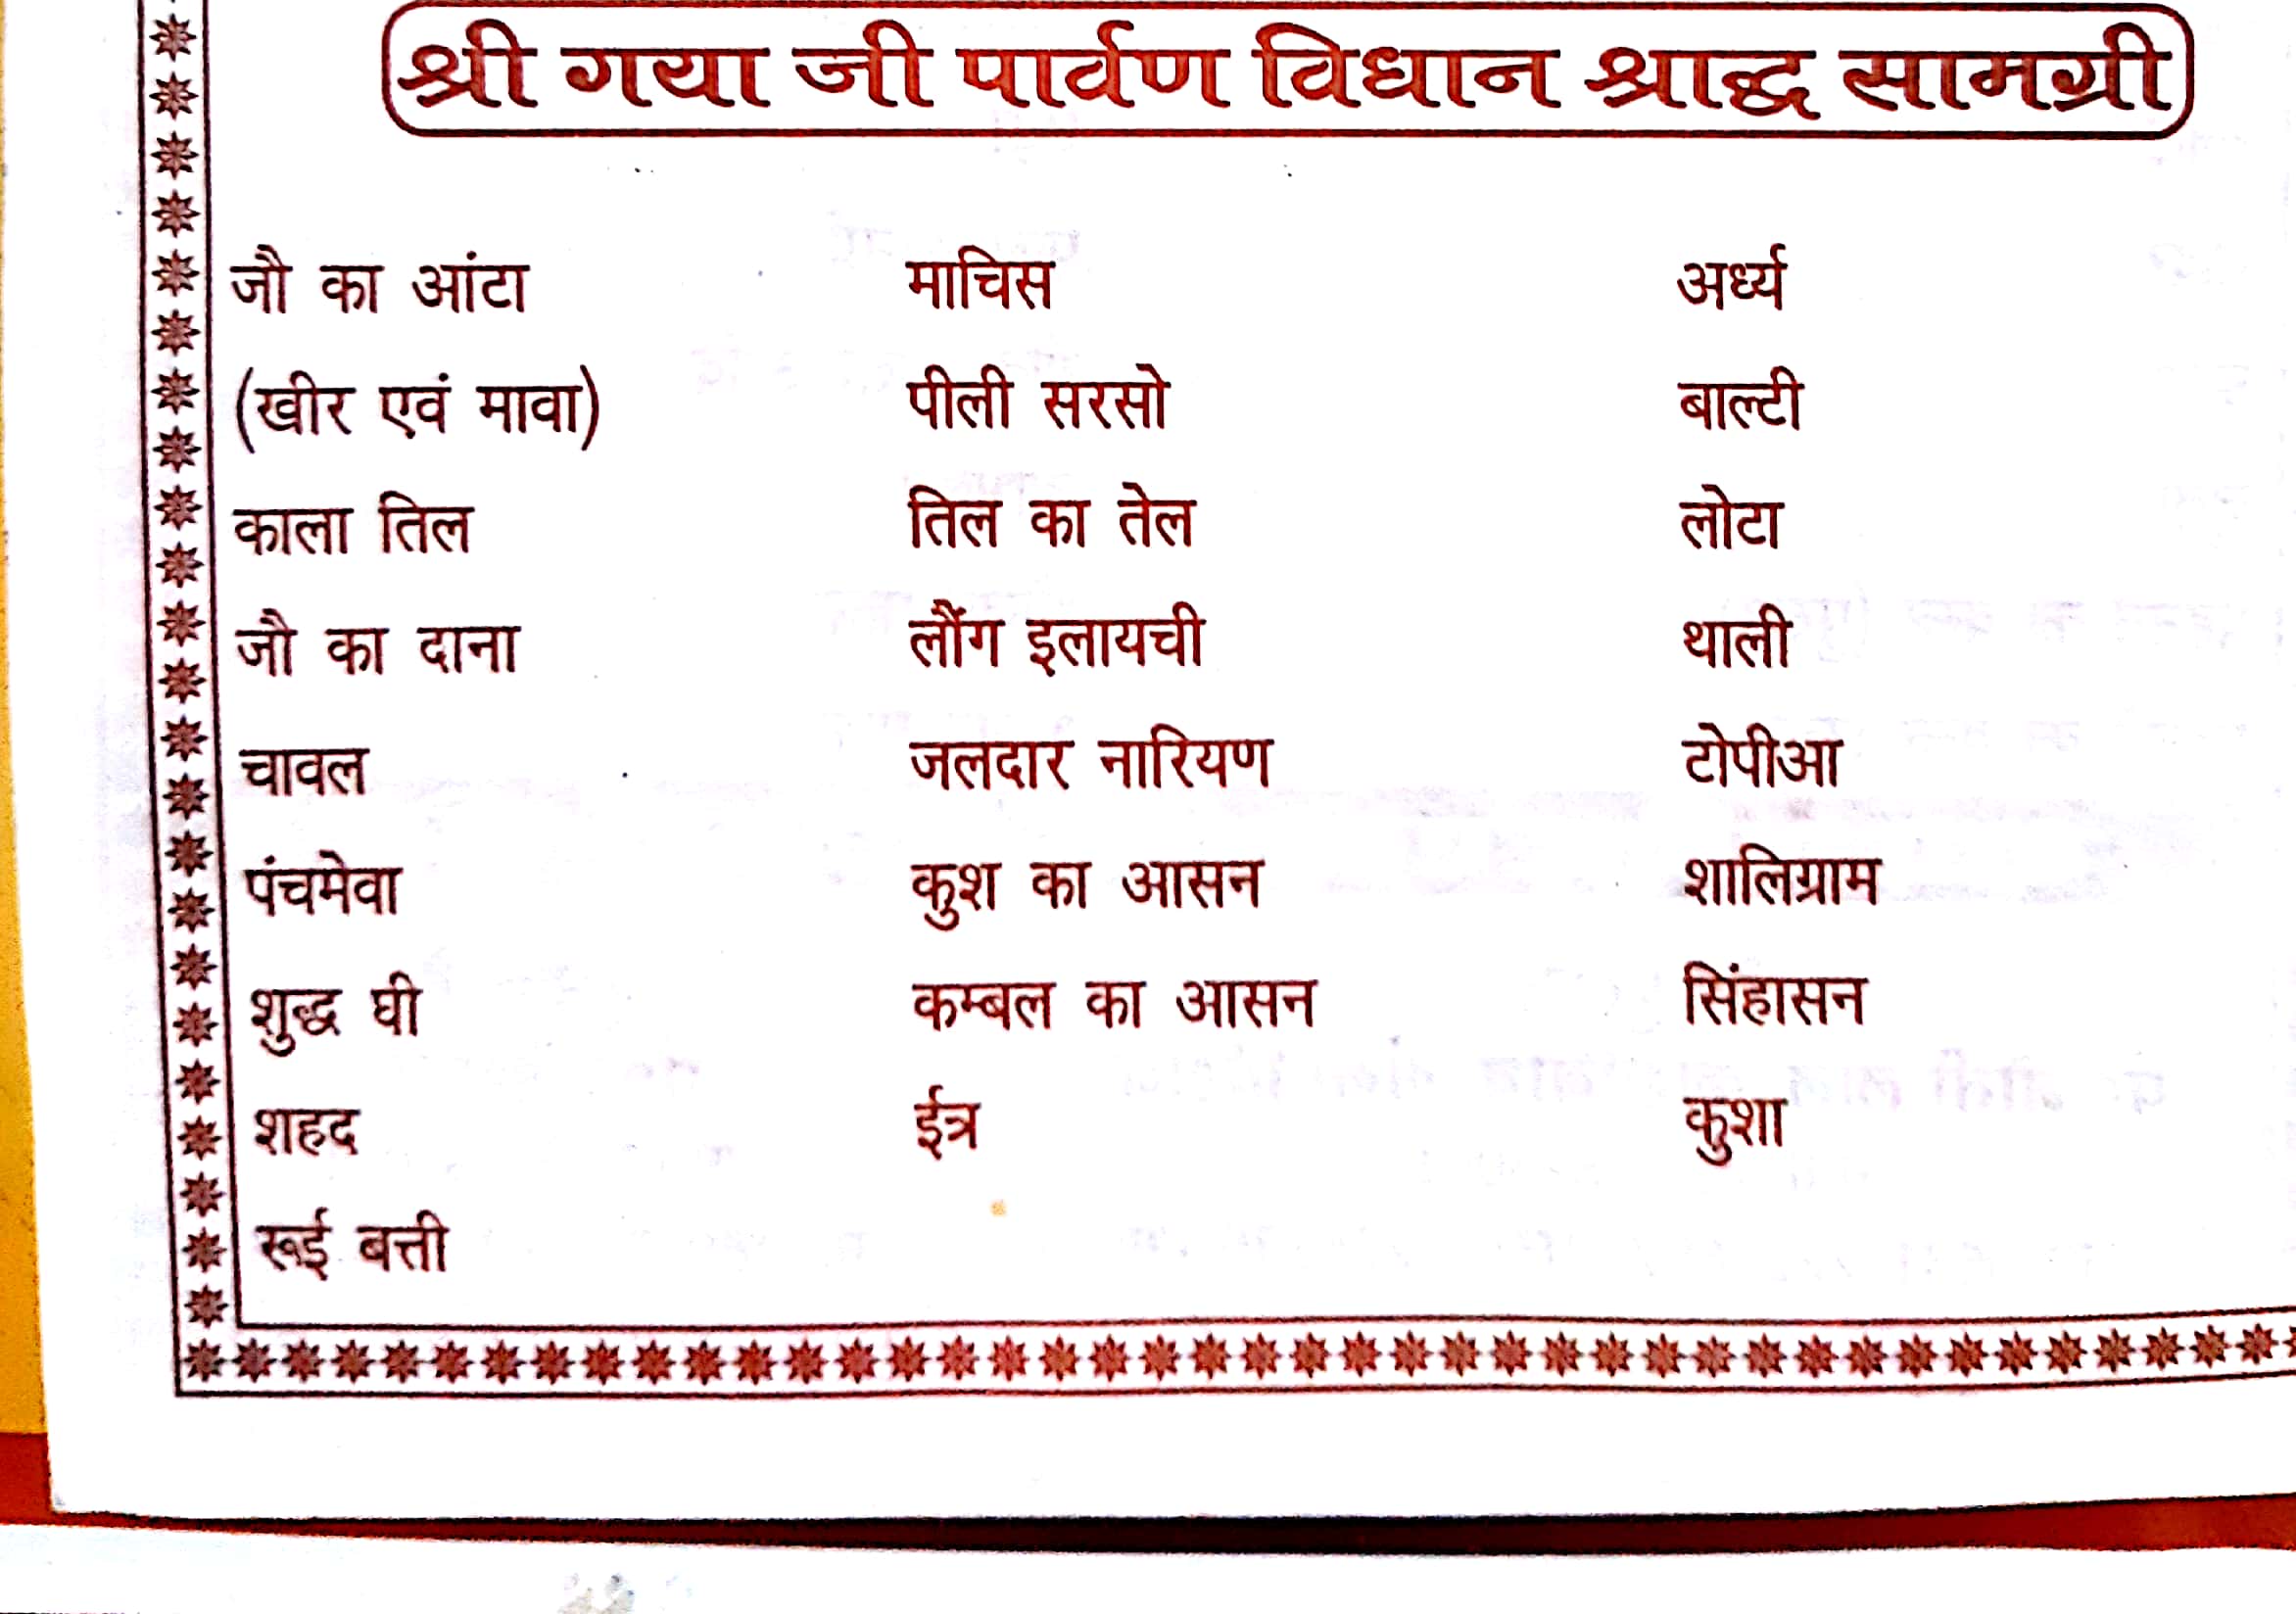 श्री गया जी पार्वण विधान श्राद्ध सामग्री
जौ का आंटा माचिस अर्ध्य
(खीर एवं मावा) पीली सरसो बाल्टी
काला तिल तिल का तेल लोटा
जौ का दाना लौंग इलायची थाली
चावल जलदार नारियण टोपीआ
पंचमेवा कुश का आसन शालिग्राम
शुद्ध घी कम्बल का आसन सिंहासन
शहद ईत्र कुशा
रूई बत्ती